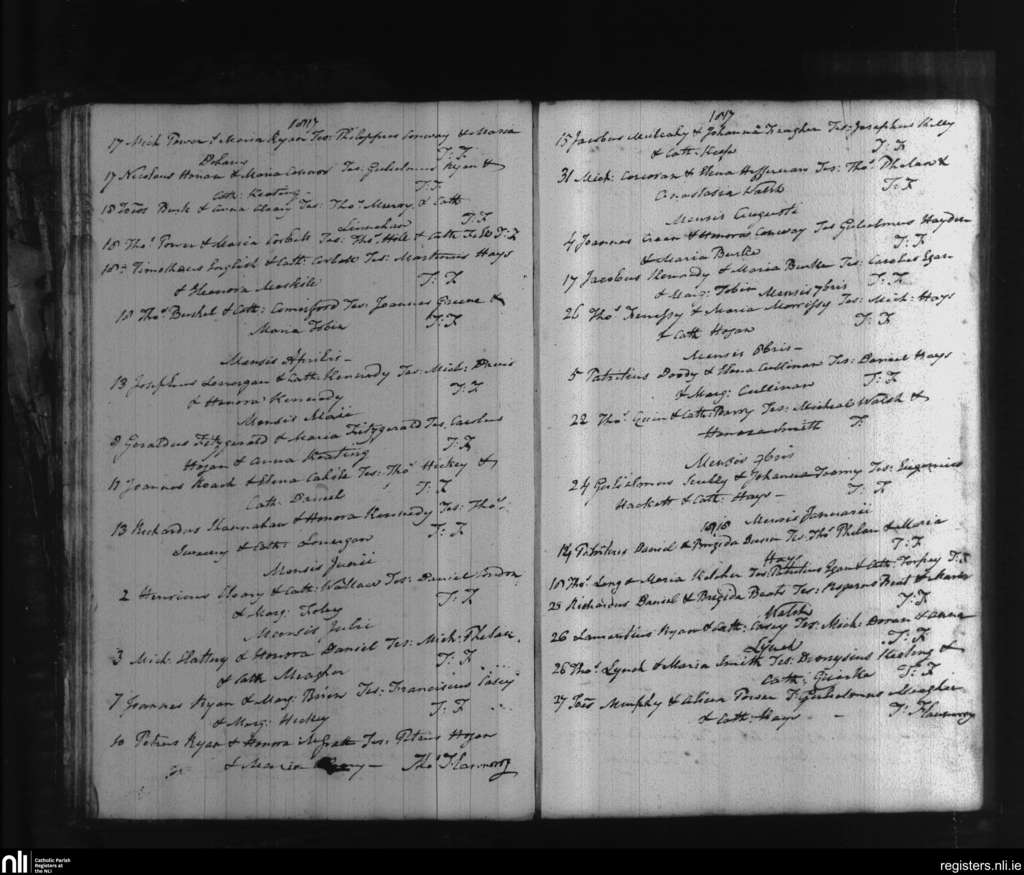 1817
17 Mich Power & Maria Ryan Tes: Philippus Conway & Maria
17 Nicolaus Honan & Maria Connor Tes. Gulielmus Ryan &
T: F
Cath: Keating - T: F
18 Joãs Burk & Anna Cleary Tes: Thos Murray & Cath
Linnehan T: F
18 Thos Power & Maria Corbett Tes: Thos Hill & Cath T: F
18 Timotheus English & Cath: Corbett Tes: Martinus Hays
& Eleonora T: F
18 Thos & Cath: Comerford Tes: Joannes Greene &
Maria Tobin T: F
Mensis Aprilis -
13 Josephus Lonergan & Cath: Kennedy Tes: Mich: Davis
& Honora Kennedy T: F
Mensis Maii
8 Geraldus Fitzgerald & Maria Fitzgerald Tes. Carolus
Hogan & Anna Keating T: F
11 Joannes Roach & Elena Tes: Thos Hickey &
Cath: Daniel T: F
13 Richardus Shannahan & Honora Kennedy Tes: Thos
Sweeny & Cath: Lonergan T: F
Mensis Junii
2 Henricus Cleary & Cath: Wallace Tes: Daniel Condon
& Marg: Foley T: F
Mensis Julii
3 Mich: Slattery & Honora Daniel Tes: Mich: Phelan
& Cath Meagher T: F
7 Joannes Ryan & Marg: Brien Tes: Franciscus Casey
& Marg: Hickey T: F
10 Petrus Ryan & Honora McGrath Tes: Petrus Hogan
& Maria - Thos Flannery
1817
15 Jacobus Mulcahy & Johanna Meagher Tes: Josephus Kelly
& Cath: Keefe T: F
31 Mich: Corcoran & Elena Heffernan Tes: Thos Phelan &
Anastasia Walsh T: F
Mensis Augusti
4 Joannes Crean & Honora Conway Tes Gulielmus Hayden
& Maria Burke T: F
17 Jacobus Kennedy & Maria Burke Tes: Carolus Egan
& Marg: Tobin Mensis 7bris T: F
26 Thos Henessy & Maria Morrissy Tes: Mich: Hays
& Cath Hogan T: F
Mensis 8bris -
5 Patritius Doody & Elena Cullinan Tes: Daniel Hays
& Marg: Cullinan T: F
22 Thos Quin & Cath: Barry Tes: Micheal Walsh &
Honora Smith T:
Mensis 9bris
24 Gulielmus Scully & Johanna Toomy Tes: Eugenius
Hackett & Cath: Hays - T: F
1818 Mensis Januarii
14 Patritius Daniel & Brigida Tes Thos Phelan & Maria
Hays T: F
18 Thos Long & Maria Kelcher Tes: Patritius Egan & Cath: Torpey T: F
25 Richardus Daniel & Brigida Tes: & Maria
Walsh T: F
26 Ryan & Cath: Casey Tes: Mich: Doran & Anna
Lynch T: F
26 Thos Lynch & Maria Smith Tes: Dionysius Keating &
Cath: T: F
27 Joãs Murphy & Alicia Power T: Gulielmus Meagher
& Cath: Hays - T: Flannery
nli
Catholic Parish
Registers at
the NLI
registers.nli.ie